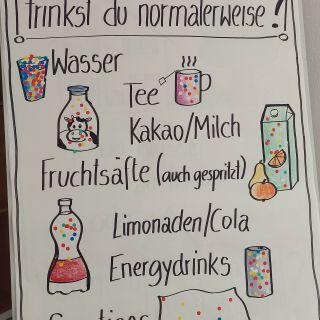 trinkst du normalerweise?!
Wasser
Tee
Kakao/Milch
Fruchtsäfte (auch gespritzt)
Limonaden/Cola
Energydrinks